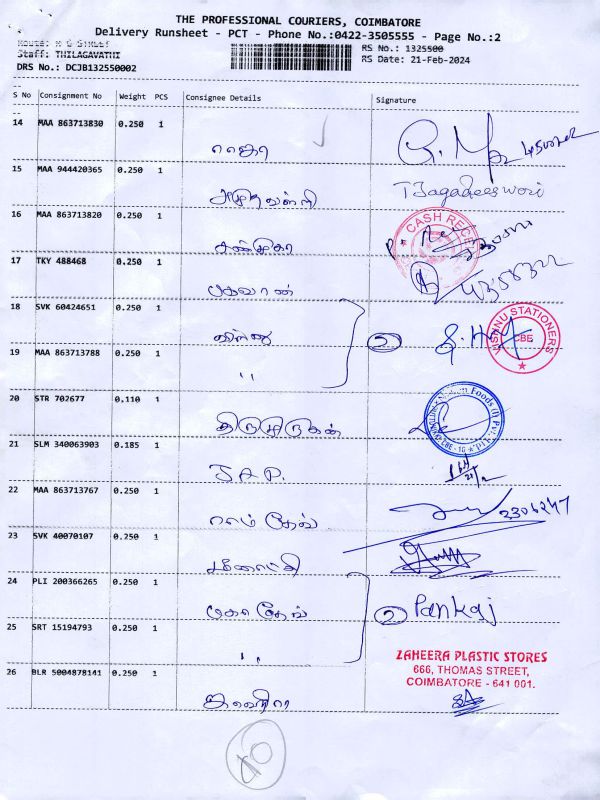 THE PROFESSIONAL COURIERS, COIMBATORE
Delivery Runsheet - PCT - Phone No.:0422-3505555 - Page No.:2
Staff: THILAGAVATHI
RS No.: 1325500
DRS No.: DCJB132550002
RS Date: 21-Feb-2024
S No Consignment No Weight PCS Consignee Details Signature
14 MAA 863713830 0.250 1
ராஜா
15 MAA 944420365 0.250 1
அமுதவள்ளி T Jagadeeswari
16 MAA 863713820 0.250 1
சண்முகா CASH
17 TKY 488468 0.250 1
பகவான்
18 SVK 60424651 0.250 1
விஷ்ணு 2 VISHNU STATIONERS CBE
19 MAA 863713788 0.250 1
"
20 STR 702677 0.110 1
திருமுருகன் Foods (I) Pvt.
21 SLM 340063903 0.185 1
J.A.P.
22 MAA 863713767 0.250 1
ராம் தேவ் 2306247
23 SVK 40070107 0.250 1
24 PLI 200366265 0.250 1
மகா தேவ் 2 Pankaj
25 SRT 15194793 0.250 1
"
ZAHEERA PLASTIC STORES
666, THOMAS STREET,
COIMBATORE - 641 001.
26 BLR 5004878141 0.250 1
ஜஹிரா